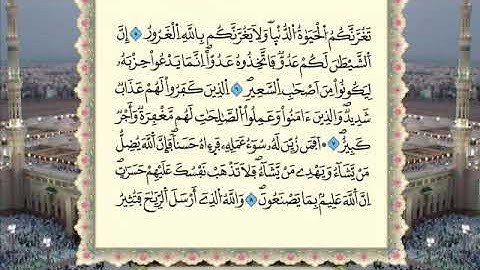 تَغُرَّنَّكُمُ الْحَيَوٰةُ الدُّنْيَا وَلَا يَغُرَّنَّكُم بِاللَّهِ الْغَرُورُ ٥ إِنَّ
الشَّيْطَٰنَ لَكُمْ عَدُوٌّ فَاتَّخِذُوهُ عَدُوًّا إِنَّمَا يَدْعُوا حِزْبَهُۥ
لِيَكُونُوا مِنْ أَصْحَٰبِ السَّعِيرِ ٦ الَّذِينَ كَفَرُوا لَهُمْ عَذَابٌ
شَدِيدٌ وَالَّذِينَ ءَامَنُوا وَعَمِلُوا الصَّٰلِحَٰتِ لَهُم مَّغْفِرَةٌ وَأَجْرٌ
كَبِيرٌ ٧ أَفَمَن زُيِّنَ لَهُۥ سُوٓءُ عَمَلِهِۦ فَرَءَاهُ حَسَنًا فَإِنَّ اللَّهَ يُضِلُّ
مَن يَشَآءُ وَيَهْدِى مَن يَشَآءُ فَلَا تَذْهَبْ نَفْسُكَ عَلَيْهِمْ حَسَرَٰتٍ
إِنَّ اللَّهَ عَلِيمٌ بِمَا يَصْنَعُونَ ٨ وَاللَّهُ الَّذِىٓ أَرْسَلَ الرِّيَٰحَ فَتُثِيرُ